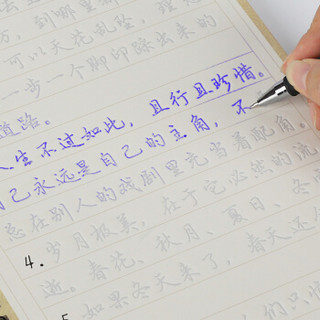 万，到哪里都
可以天花乱坠，理
一步一个脚印踩出来的
道路。
人生不过如此，且行且珍惜。
自己永远是自己的主角，不
总在别人的戏剧里充当着配角。
4. 岁月极美，在于它必然的流
逝。春花、秋月、夏日、冬
5. 如果冬天来了，春天还